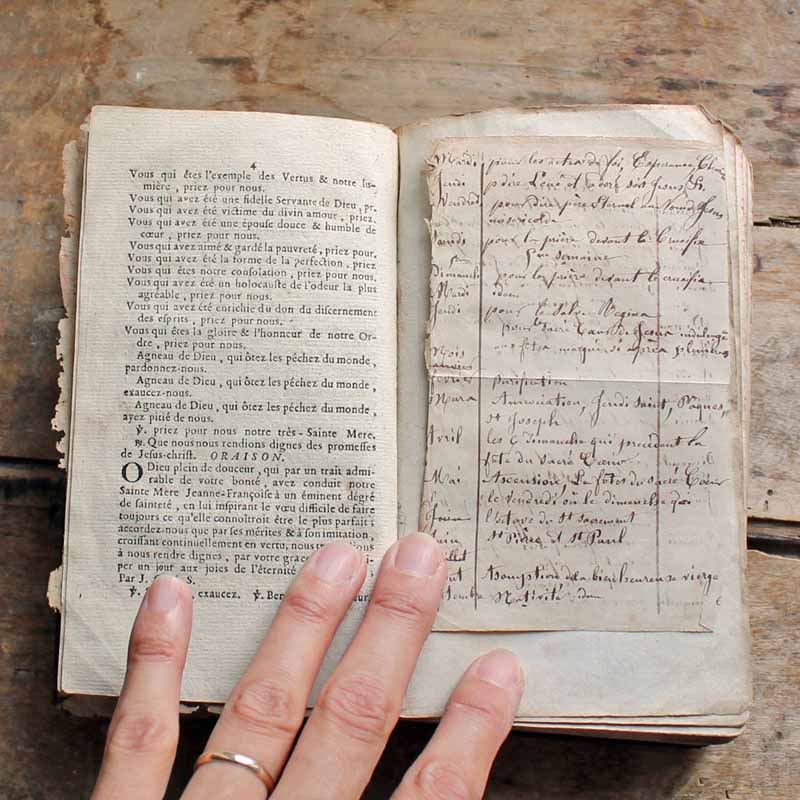 4
Vous qui êtes l'exemple des Vertus & notre lu-
mière, priez pour nous.
Vous qui avez été une fidelle Servante de Dieu, pr.
Vous qui avez été victime du divin amour, priez.
Vous qui avez été une épouse douce & humble de
cœur, priez pour nous.
Vous qui avez aimé & gardé la pauvreté, priez pour.
Vous qui avez été la forme de la perfection, priez
Vous qui êtes notre consolation, priez pour nous.
Vous qui avez été un holocauste de l'odeur la plus
agréable, priez pour nous.
Vous qui avez été enrichie du don du discernement
des esprits, priez pour nous.
Vous qui êtes la gloire & l'honneur de notre Or-
dre, priez pour nous.
Agneau de Dieu, qui ôtez les péchez du monde,
pardonnez-nous.
Agneau de Dieu, qui ôtez les péchez du monde,
exaucez-nous.
Agneau de Dieu, qui ôtez les péchez du monde,
ayez pitié de nous.
℣. priez pour nous notre très-Sainte Mere.
℟. Que nous nous rendions dignes des promesses
de Jesus-christ. ORAISON.
O Dieu plein de douceur, qui par un trait admi-
rable de votre bonté, avez conduit notre
Sainte Mere Jeanne-Françoise à un éminent dégré
de sainteté, en lui inspirant le vœu difficile de faire
toujours ce qu'elle connoîtroit être le plus parfait;
accordez-nous que par ses mérites & à son imitation,
croissant continuellement en vertu, nous
à nous rendre dignes, par votre grace
per un jour aux joies de l'éternité
Par J. S.
exaucez. ℣.
Mardi pour les actes de foi, Esperance,
Jeudi
Vendredi pour dire père Eternel au nom de Jesus
misericorde
Samedi pour la prière devant le Crucifix
semaine
dimanche pour la prière devant le crucifix
Mardi idem
Jeudi pour le Salve Regina
pour Sacré Cœur de Jesus indulgce
Mois
janvier
fevrier purification
Mars Annociation, Jeudi saint, Paques,
St Joseph
Avril les 6 dimanche qui precedent la
fête du Sacré Cœur
Mai Ascension La fêtes du sacre Cœur
le vendredi où le dimanche qui
l'octave du St sacrement
Juin St Pierre et St Paul
Assomption de la bienheureuse vierge
Nativité idem